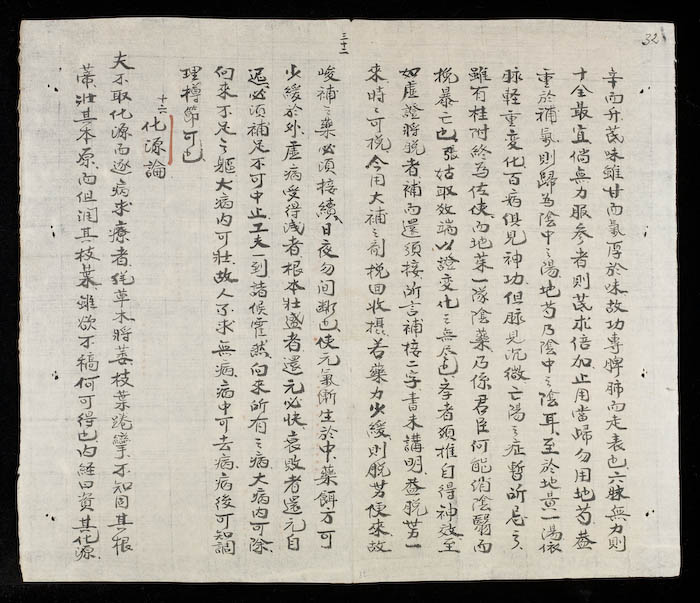 32
三十二
辛而升芪味雖甘而氣厚於味故功專脾肺而走表也六脉無力則
十全最宜倘無力服參者則芪朮倍加止用當歸勿用地芍蓋
重於補氣則歸為陰中之陽地芍乃陰中之陰耳至於地黃一湯依
脉軽重變化百病俱見神功但脉見沉微亡陽之症暫所忌之
雖有桂附終為佐使而地茱一隊陰藥乃係君臣何能消陰翳而
挽暴亡也張姑取效端以證變化之無尽也孝者須推自得神效至
如虛證將脱者補而還須接所言補接二字書未講明蓋脱勢一
來時之可挽今用大補之剤挽回收攝若藥力少緩則脱勢便來故
峻補之藥必須接續日夜勿间斷也使元氣漸生於中藥餌方可
少緩於外虛病受得浅者根本壮盛者還元必快衰敗者還元自
迟必須補足不可中止工夫一到諸候霍然向來所有之病大病内可除
向來不足之軀大病内可壮故人了求無病病中可去病病後可知調
理樽節可也
十六 化源論
夫不取化源而逐病求療者猶草木將萎枝葉踡攣不知固其根
蒂壮其本原而但润其枝葉雖欲不稿何可得也内経曰資其化源